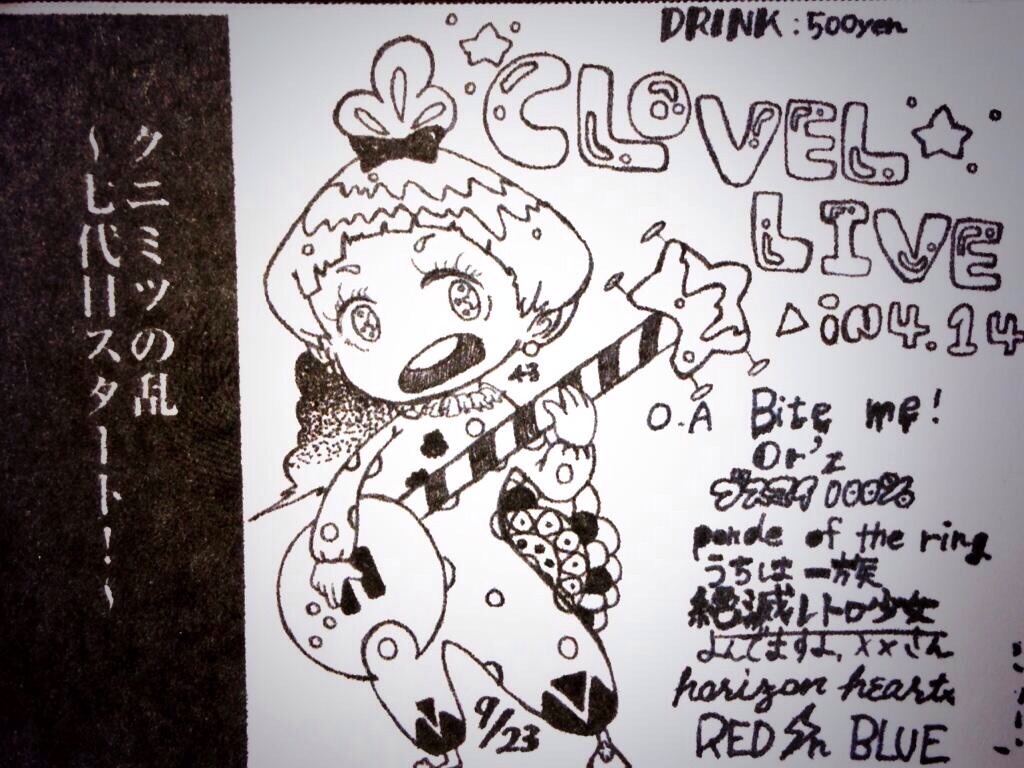 クニミツの乱
~七代目スタート!~
DRINK:500yen
CLOVEL
LIVE
in 4.14
O.A Bite me!
Or'z
100%
ponde of the ring
うちは一族
絶滅レトロ少女
よんでますよ,××さん
horizon heart
RED BLUE
9/23